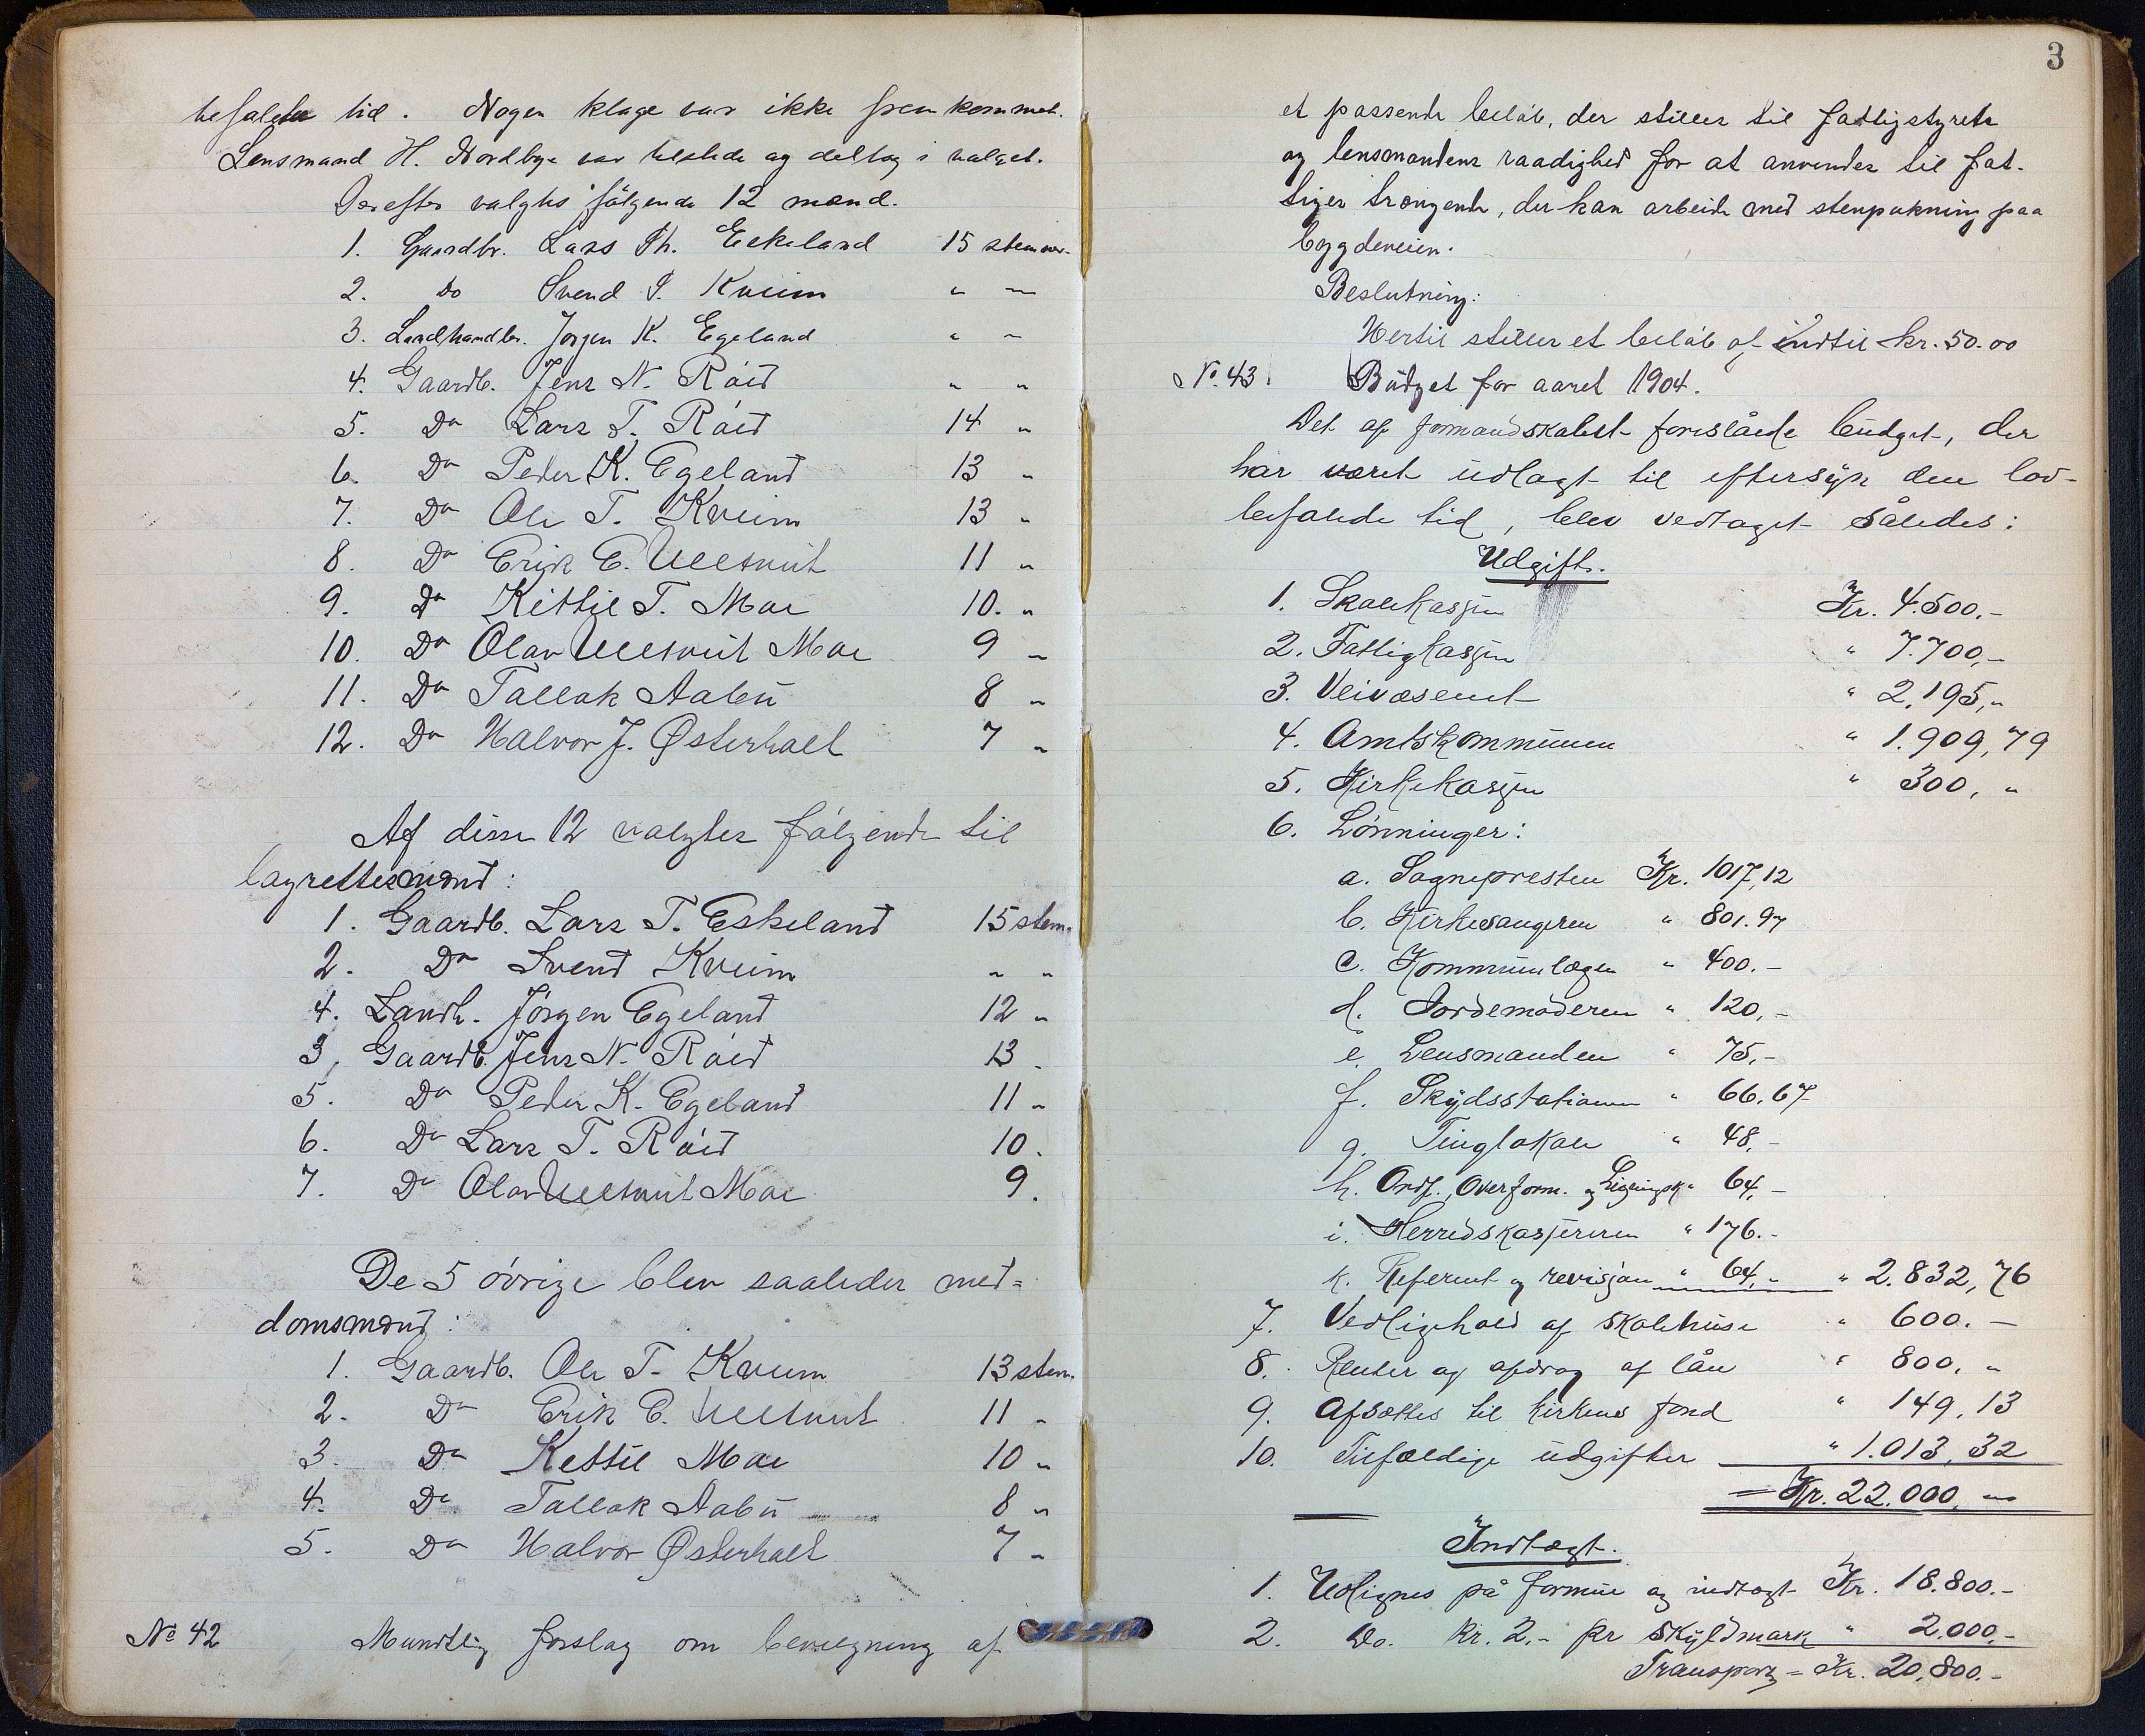 befalede tid. Nogen klage var ikke fremkommet.
Lensmand H. Nordbye var tilstede og deltog i valget.
Derefter valgtes følgende 12 mænd.
1. Gaardbr. Lars Th. Eskeland 15 stemmer.
2. Do Svend S. Kveim " "
3. Landhandler. Jørgen K. Egeland " "
4. Gaardb. Jens N. Røid " "
5. Do Lars T. Røid 14 "
6. Do Peder K. Egeland 13 "
7. Do Ole T. Kveim 13 "
8. Do Erik E. Ullsveit 11 "
9. Do Kittil T. Moe 10. "
10. Do Olav Ullsveit Moe 9 "
11. Do Tallak Aabü 8 "
12. Do Halvor J. Østerhalt 7 "
Af disse 12 valgtes følgende til
lagrettesmænd:
1. Gaardb. Lars T. Eskeland 15 stem.
2. Do Svend Kveim " "
4. Landh. Jørgen Egeland 12 "
3, Gaardb. Jens N. Røid 13 "
5. Do Peder K. Egeland 11 "
6. Do Lars T. Røid 10.
7. Do Olav Ullsveit Moe 9.
De 5 øvrige blev saaledes med=
domsmænd:
1. Gaardb. Ole T. Kveim 13 stem.
2. Do Erik E. Ullsveit 11 "
3. Do Kettil Moe 10 "
4. Do Tallak Aabü 8 "
5. Do Halvor Østerhalt 7 "
No 42 Mundtlig forslag om bevilgning af
3
et passende beløb, der stilles til fattigstyrets
og lensmandens raadighed for at anvendes til fat-
tiges trængende, der kan arbeide med stenpukning paa
bygdeveien.
Beslutning:
Hertil stilles et beløb af indtil kr. 50.00
No. 43. Büdget for aaret 1904.
Det af formandskabet foreslåede büdget, der
har været üdlagt til eftersÿn den lov-
befalede tid, blev vedtaget således:
Udgift.
1. Skolekassen Kr. 4.500.-
2. Fattigkassen " 7.700,-
3. Veivæsenet " 2.195,"
4. Amtskommünen " 1.909,79
5. Kirkekassen " 300, "
6. Lønninger:
a. Sognepresten Kr. 1017,12
b. Kirkesangeren " 801.97
c. Kommünelægen " 400.-
d. Jordemoderen " 120,-
e. Lensmanden " 75,-
f. Skÿdsstationen " 66.67
g. Tinglokale " 48,-
h. Ordf., Overform. og Ligningsk. " 64,-
i. Herredskasjereren " 176.-
k. Referent og revisjon " 64,- " 2.832,76
7. Vedligehold af skolehüse " 600.-
8. Renter og afdrag af lån " 800, "
9. Afsættes til kirkens fond " 149,13
10. Tilfældige üdgifter " 1.013,32
= Kr. 22.000, "
Indtægt.
1. Udlignes på formüe og indtægt Kr. 18.800.-
2. Do. Kr. 2,- pr skÿldmark " 2.000.-
Transport = Kr. 20,800.-